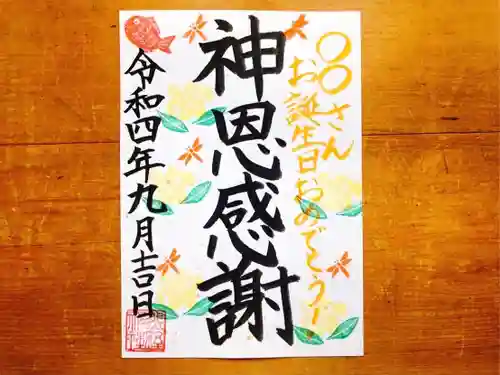 〇〇さん
お誕生日おめでとう!
神恩感謝
令和四年九月吉日